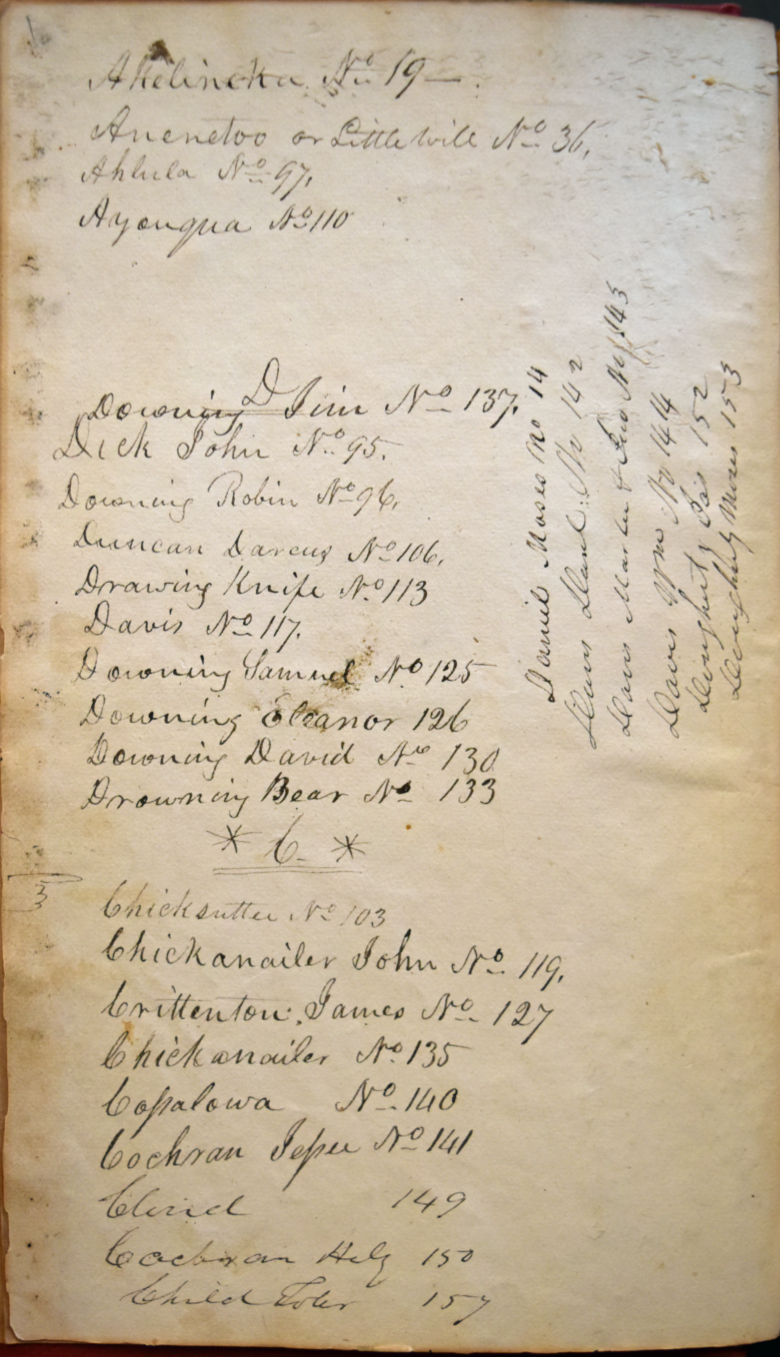 Akelincka No 19 —.
Anenetoo or Little Will No 36.
Ahlula No 97.
Ayongua No 110
D
Downing Jim No 137.
Dick John No 95.
Downing Robin No 96.
Duncan Darcus No 106.
Drawing Knife No 113
Davis No 117.
Downing Samuel No 125
Downing Eleanor 126
Downing David No 130
Drowning Bear No 133
* C. *
3
Chicksuttee No 103
Chickanailer John No 119.
Crittenton James No 127
Chickanailer No 135
Copalowa No 140
Cochran Jessee No 141
149
Cochran 150
Child 157
Daniel Moses No 14
Davis Danl. No 142
Davis Martin & No 143
Davis Wm No 144
Dougherty Jas 152
Dougherty Moses 153